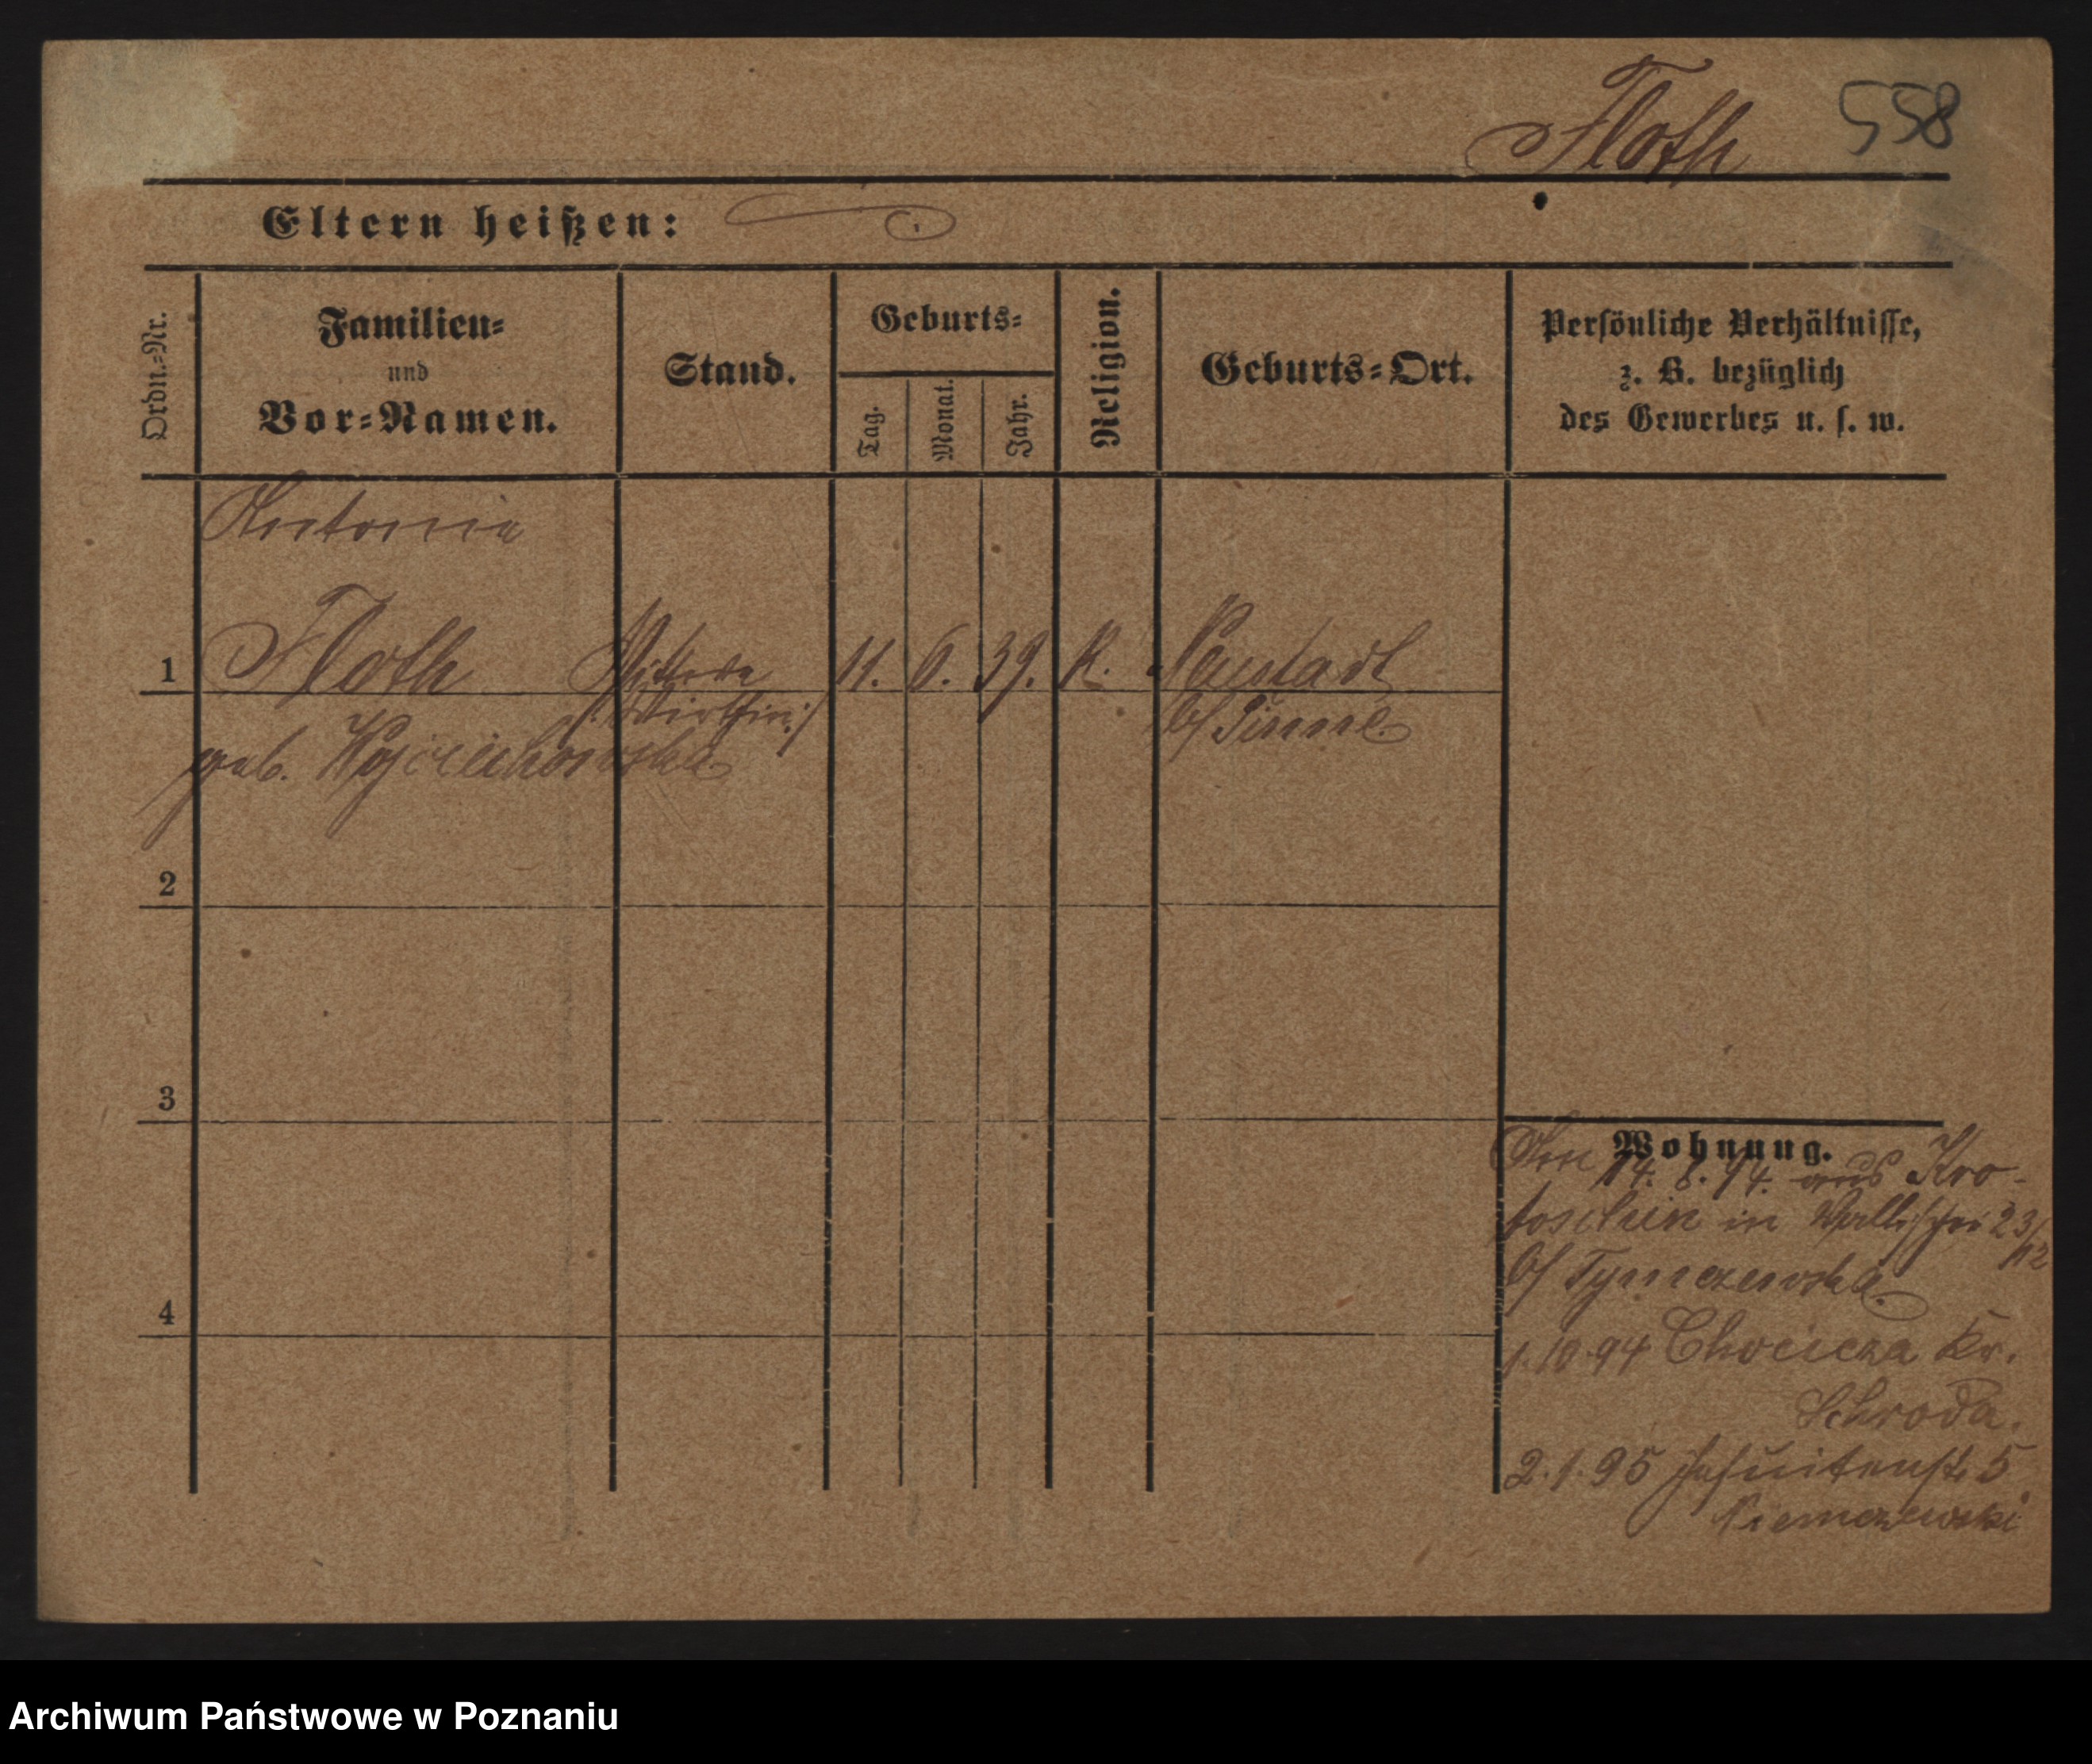 Floth 558
Eltern heißen:
Ordn.-Nr.
Familien-
und
Vor-Namen.
Stand.
Geburts-
Tag.
Monat.
Jahr.
Religion.
Geburts-Ort.
Persönliche Verhältnisse,
z. B. bezüglich
des Gewerbes u. s. w.
Antonie
1 Floth 11. 6. 39. K. Neustadt
(:Wirthin:) b/ Pinne.
geb. Wojciechowska
2
3
4
Wohnung.
14. 8. 94. aus Kro-
toschin in Wallischei 23/12
b/ Tymczewska.
1.10.94 Chocicza Kr.
Schroda.
2.1.95 Jesuitenstr. 5
Niemczewski
Archiwum Państwowe w Poznaniu